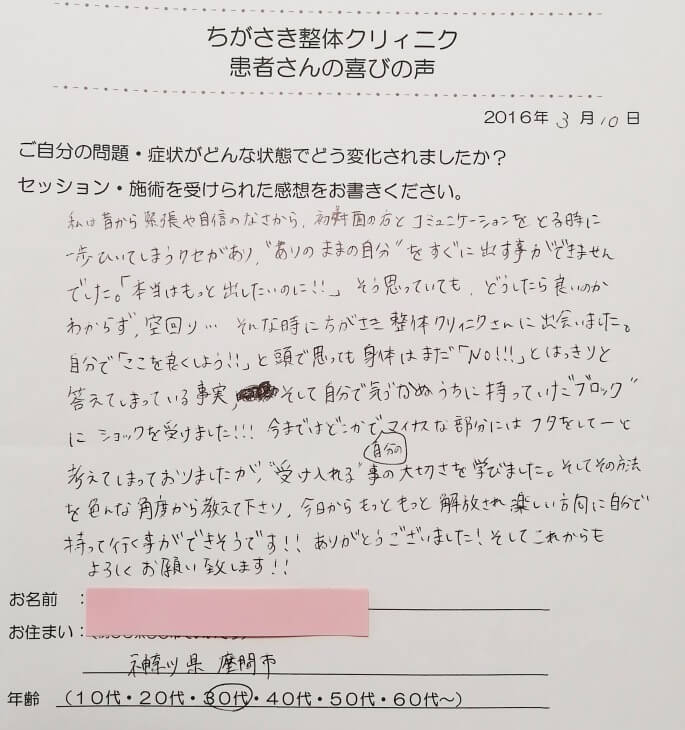 ちがさき整体クリィニク
患者さんの喜びの声
2016年 3 月 10 日
ご自分の問題・症状がどんな状態でどう変化されましたか？
セッション・施術を受けられた感想をお書きください。
私は昔から緊張や自信のなさから、初対面の方とコミュニケーションをとる時に
一歩ひいてしまうクセがあり、"ありのままの自分"をすぐに出す事ができません
でした。「本当はもっと出したいのに!!」そう思っていても、どうしたら良いのか
わからず、空回り… そんな時にちがさき整体クリィニクさんに出会いました。
自分で「ここを良くしよう!!」と頭で思っても身体はまだ「NO!!!」とはっきりと
答えてしまっている事実、そして自分で気づかぬうちに持っていた"ブロック"
にショックを受けました!!! 今まではどこかでマイナスな部分にはフタをしてーと
自分の
考えてしまっておりましたが、"受け入れる"事の大切さを学びました。そしてその方法
を色んな角度から教えて下さり、今日からもっともっと解放され楽しい方向に自分で
持って行く事ができそうです!! ありがとうございました! そしてこれからも
よろしくお願い致します!!
お名前 :
お住まい :
神奈川県 座間市
年齢 （10代・20代・30代・40代・50代・60代〜）